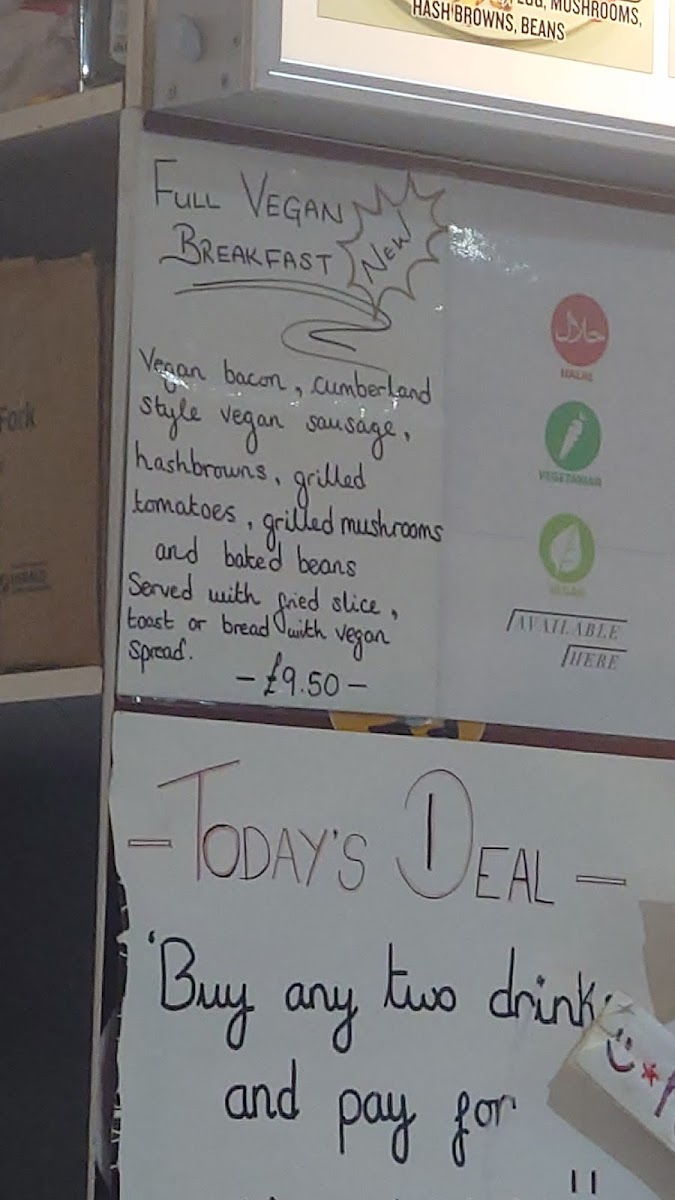 EGG, MUSHROOMS,
HASH BROWNS, BEANS
FULL VEGAN
BREAKFAST
NEW
Vegan bacon, cumberland
style vegan sausage,
hashbrowns, grilled
tomatoes, grilled mushrooms
and baked beans
Served with fried slice,
toast or bread with vegan
spread.
-£9.50-
حلال
HALAL
VEGETARIAN
VEGAN
AVAILABLE
HERE
Fork
- TODAY'S DEAL -
'Buy any two drink
and pay for